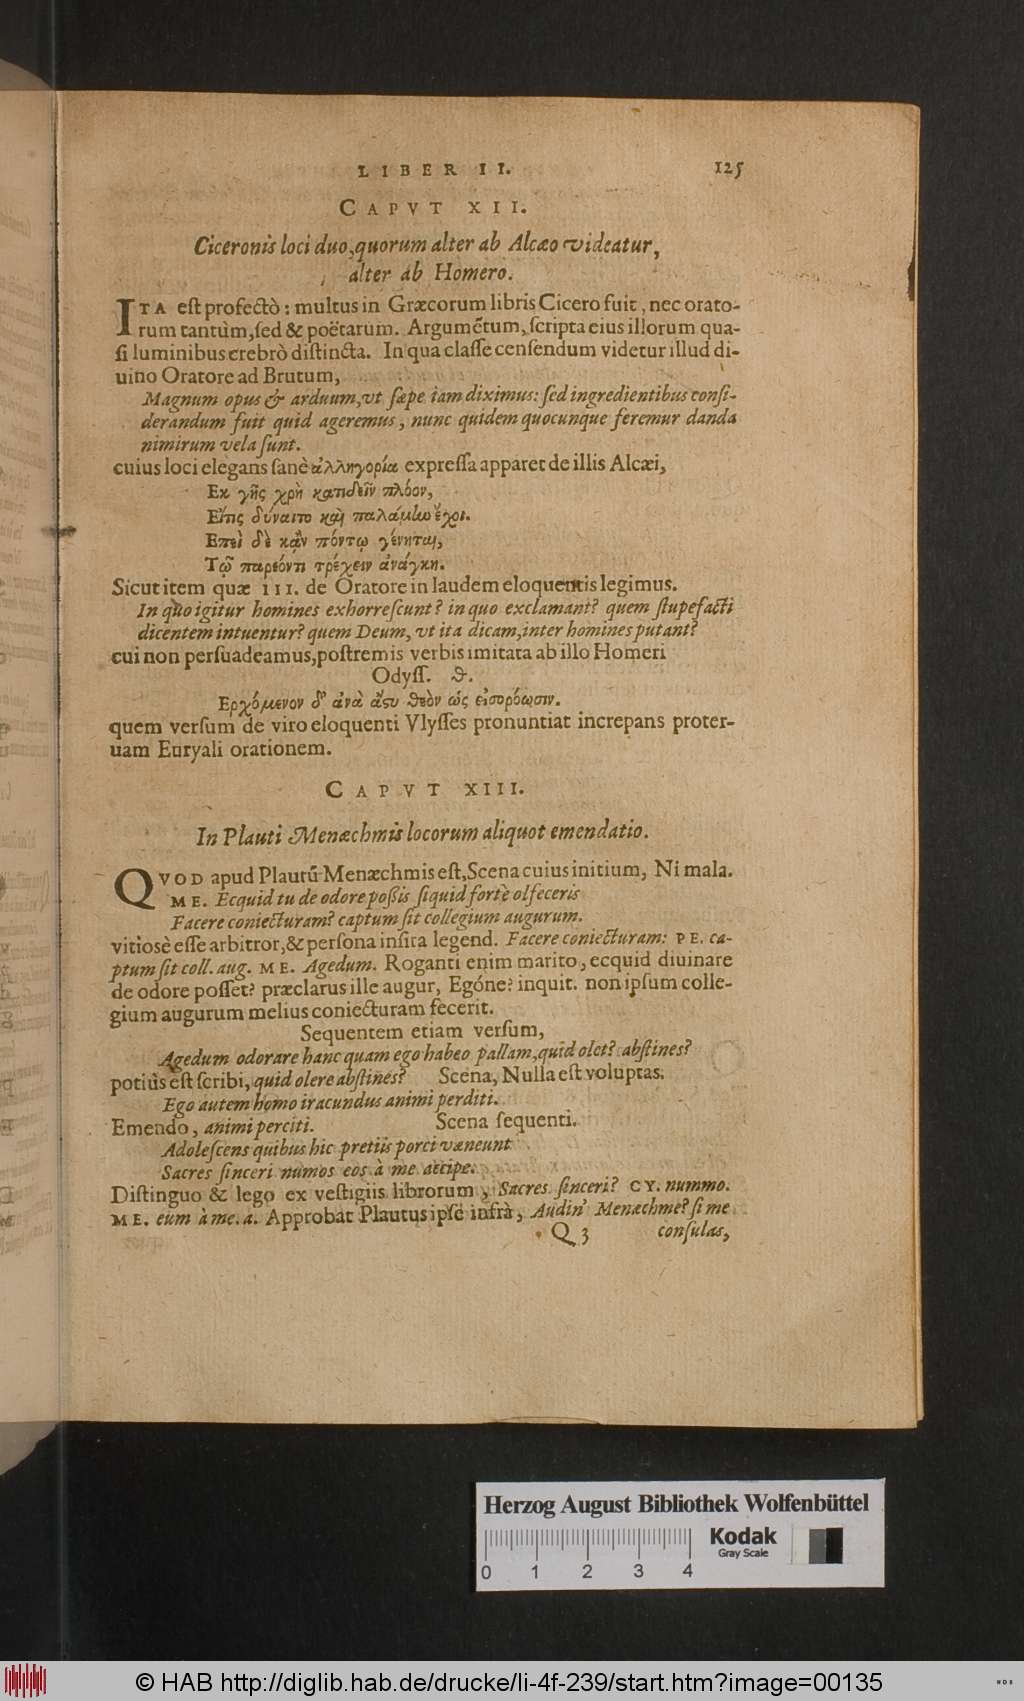 LIBER II. 125
CAPVT XII.
Ciceronis loci duo, quorum alter ab Alcæo videatur,
alter ab Homero.
ITA est profectò: multus in Græcorum libris Cicero fuit, nec orato-
rum tantùm, sed & poëtarum. Argumẽtum, scripta eius illorum qua-
si luminibus crebrò distincta. In qua classe censendum videtur illud di-
uino Oratore ad Brutum,
Magnum opus & arduum, vt sæpe iam diximus: sed ingredientibus consi-
derandum fuit quid ageremus, nunc quidem quocunque feremur danda
nimirum vela sunt.
cuius loci elegans sanè ἀλληγορία expressa apparet de illis Alcæi,
Εκ γῆς χρὴ κατιδεῖν πλόον,
Εἴτις δύναιτο καὶ παλάμην ἔχοι.
Επεὶ δὲ κἂν πόντῳ γένηται,
Τῷ παρεόντι τρέχειν ἀνάγκη.
Sicut item quæ III. de Oratore in laudem eloquentis legimus.
In quo igitur homines exhorrescunt? in quo exclamant? quem stupefacti
dicentem intuentur? quem Deum, vt ita dicam, inter homines putant?
cui non persuadeamus, postremis verbis imitata ab illo Homeri
Odyss. ϑ.
Ερχόμενον δ' ἀνὰ ἄστυ θεὸν ὡς εἰσορόωσιν.
quem versum de viro eloquenti Vlysses pronuntiat increpans proter-
uam Euryali orationem.
CAPVT XIII.
In Plauti Menæchmis locorum aliquot emendatio.
QVOD apud Plautũ Menæchmis est, Scena cuius initium, Ni mala.
ME. Ecquid tu de odore possis siquid fortè olfeceris
Facere coniecturam? captum sit collegium augurum.
vitiosè esse arbitror, & persona insita legend. Facere coniecturam: PE. ca-
ptum sit coll. aug. ME. Agedum. Roganti enim marito, ecquid diuinare
de odore posset? præclarus ille augur, Egóne? inquit. non ipsum colle-
gium augurum melius coniecturam fecerit.
Sequentem etiam versum,
Agedum odorare hanc quam ego habeo pallam, quid olet? abstines?
potiùs est scribi, quid olere abstines? Scena, Nulla est voluptas.
Ego autem homo iracundus animi perditi.
Emendo, animi perciti. Scena sequenti.
Adolescens quibus hic pretiis porci væneunt
Sacres sinceri numos eos à me accipe.
Distinguo & lego ex vestigiis librorum, Sacres sinceri? CY. nummo.
ME. eum à me. a. Approbat Plautus ipse infrà, Audin' Menæchme? si me
Q 3 consulas,
Herzog August Bibliothek Wolfenbüttel
Kodak
Gray Scale
0 1 2 3 4
© HAB http://diglib.hab.de/drucke/li-4f-239/start.htm?image=00135